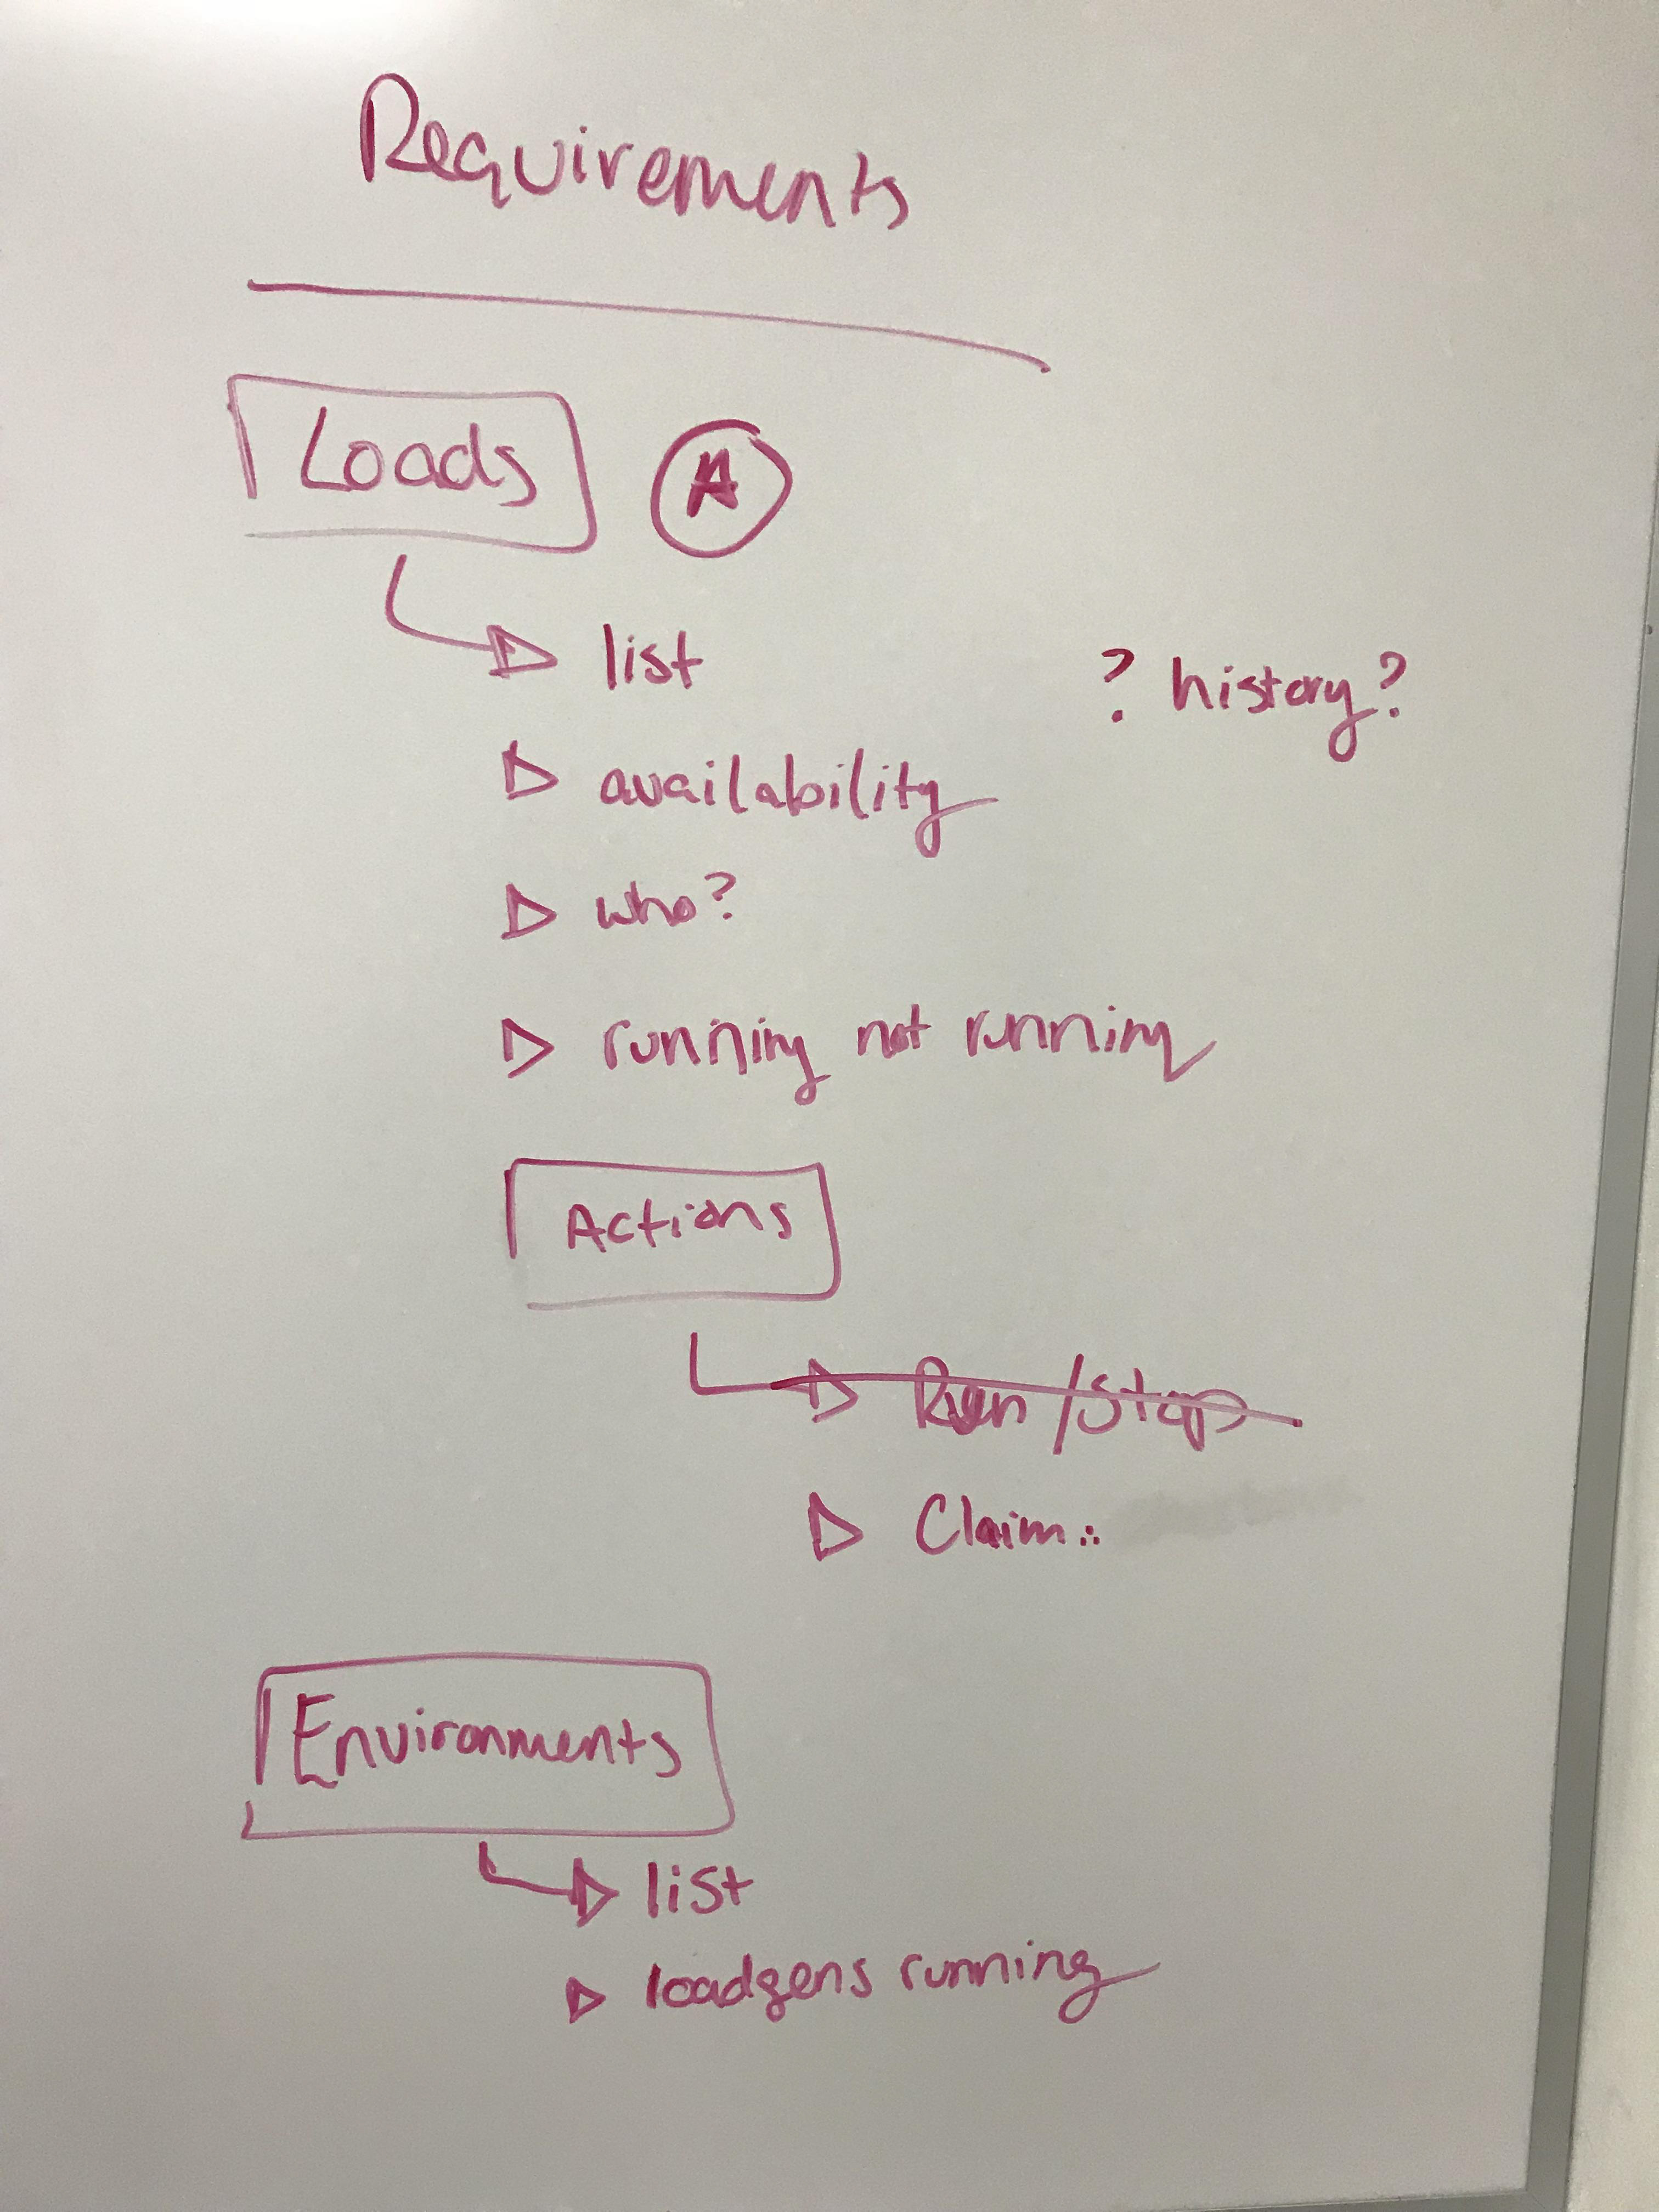 Requirements
Loads A
list
? history?
availability
who?
running not running
Actions
Run/Stop
Claim:.
Environments
list
loadgens running